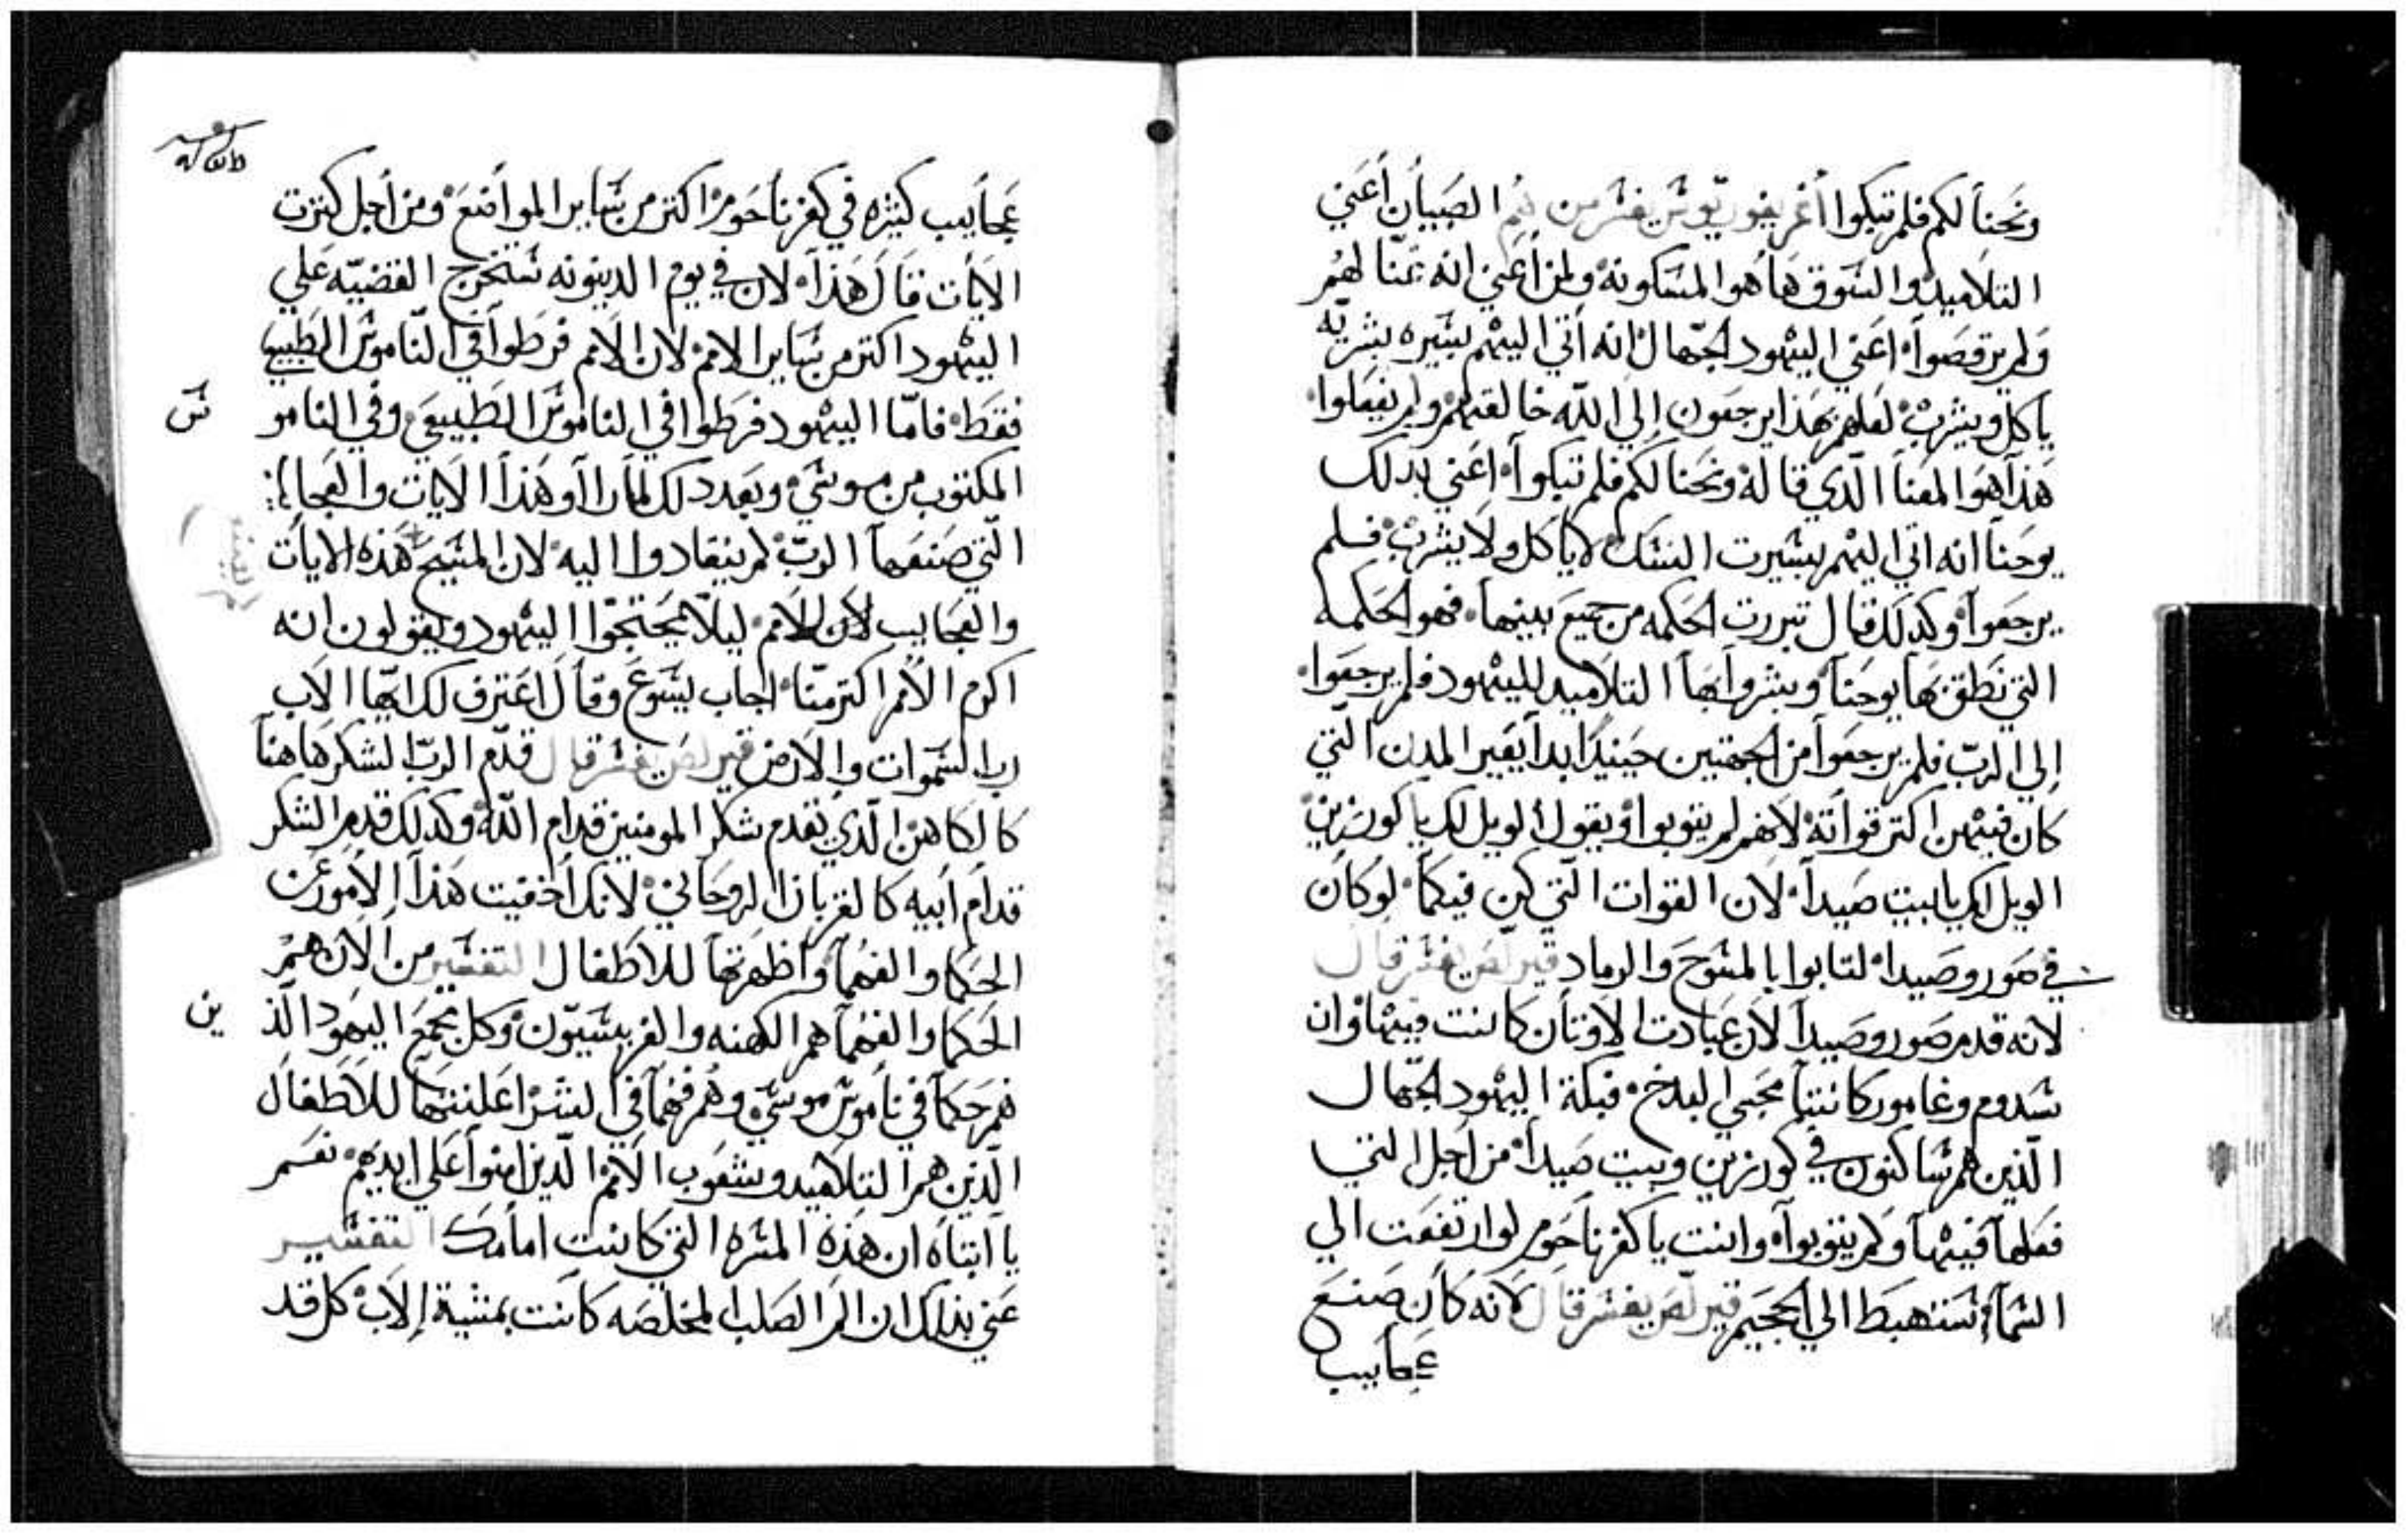 ونَحنا لكم فلم تبكوا أغريغوريوس يفسر من هُم الصَبيان أعَني
التلاميد والسَوق هَاهوا المسَكونه ولمن أعَني انه غنّا لهُم
وَلم يرقصَوا اعَني اليَهود الجهّال انه أتي اليهم بسَيره بشريّه
ياكل ويشرب لعَلهم بهَذا يرجعَون إلي اللّه خالقهم ولم يفعَلوا
هَذا هَوا المعَنا الّدي قاله ونَحنا لكم فلم تبكوا اعَني بدلك
يوحَنا انه اتي اليهم بسَيرت النسَك لاياكل ولايشرب فلم
يرجعَوا وكدلك قال تبررت الحَكمه من جميعَ بينيها فهو الحَكمه
التي نَطق بهَا يوحَنا وبشروا بهَا التلاميد لليَهود فلم يرجعَوا
إلي الربّ فلم يرجعَوا من الجهتين حَينيدًا بدا يعَير المدن التي
كان فيهن اكتر قواته لانهم لم يتوبوا ويقول الويل لك يا كورزين
الويل لكِ يابيت صَيدا لان القوات التي كن فيكما لوكان
في صَور وصَيدا لتابوا بالمسَوحَ والرماد قيرلصَ يفسَر قال
لانه قدم صَور وصَيدا لان عَبادت الاوتان كانت فيها وان
سَدوم وغامور كانتا محَبي البدخ فبكة اليَهود الجهّال
الّذين هم سَاكنون في كورزين وبيت صَيدا من أجل التي
فعَلها فيها ولم يتوبوا وانت ياكفرناحَوم لوارتفعَت الي
السَما ستهبَط الي الجحَيم قيرلّصَ يفسَر قال لانه كان صَنعَ
عَجايب
عَجايب كثيره في كفرناحَوم اكتر من سَاير المواضعَ ومن أجل كترت
الايات قال هَذا لان في يوم الدينونه سَتخرج القضيّه عَلي
اليهود اكتر من سَاير الامم لان الامم فرطوا في النّاموسَ الطَبيعي
فقَط فامّا اليهود فرطوا في الناموسَ الطَبيعَي وفي النامو سَ
المكتوب من موسَي وبعَد دلك لما راأو هَذا الايات والعَجايب
الّتي صَنعَها الربّ لم ينقادوا اليه لان المسَيحَ هَذه الايات
والعَجايب لأن للامم ليلّا يحَتجّوا اليَهود ويقولون انه
اكرم الأمم اكتر منّا اجاب يسَوعَ وقال اعَترف لك ايّها الاب
رب السَموات والارض قيرلصَ يفسَر قال قدّم الربّ الشكر هَاهنا
كالكاهن الّدي تقدم شكر المومنين قدام اللّه وكدلك قدم الشكر
قدام أبيه كالقربان الروحَاني لانك أخفيت هَذا الأمور عَن
الحَكما والفهما وأظهرتهَا للاطفال التفسَير من الان همُ
الحَكما والفهما هم الكهنه والفريسَيّون وكل مجمعَ اليهَود الّذ ين
هم حَكما في ناموسَ موسَي وهُم فهما في الشر اعَلنتهَا للاطفال
الّذين هم التلاميد وشعَوب الامم الّدين امنوا عَلي ايديهم نعَم
يا أبتاه ان هَذه المسَره التي كانت امامك التفسَير
عَني بذلك ان المرا الصَلب المخلصَه كانت بمشية الاب كل قد